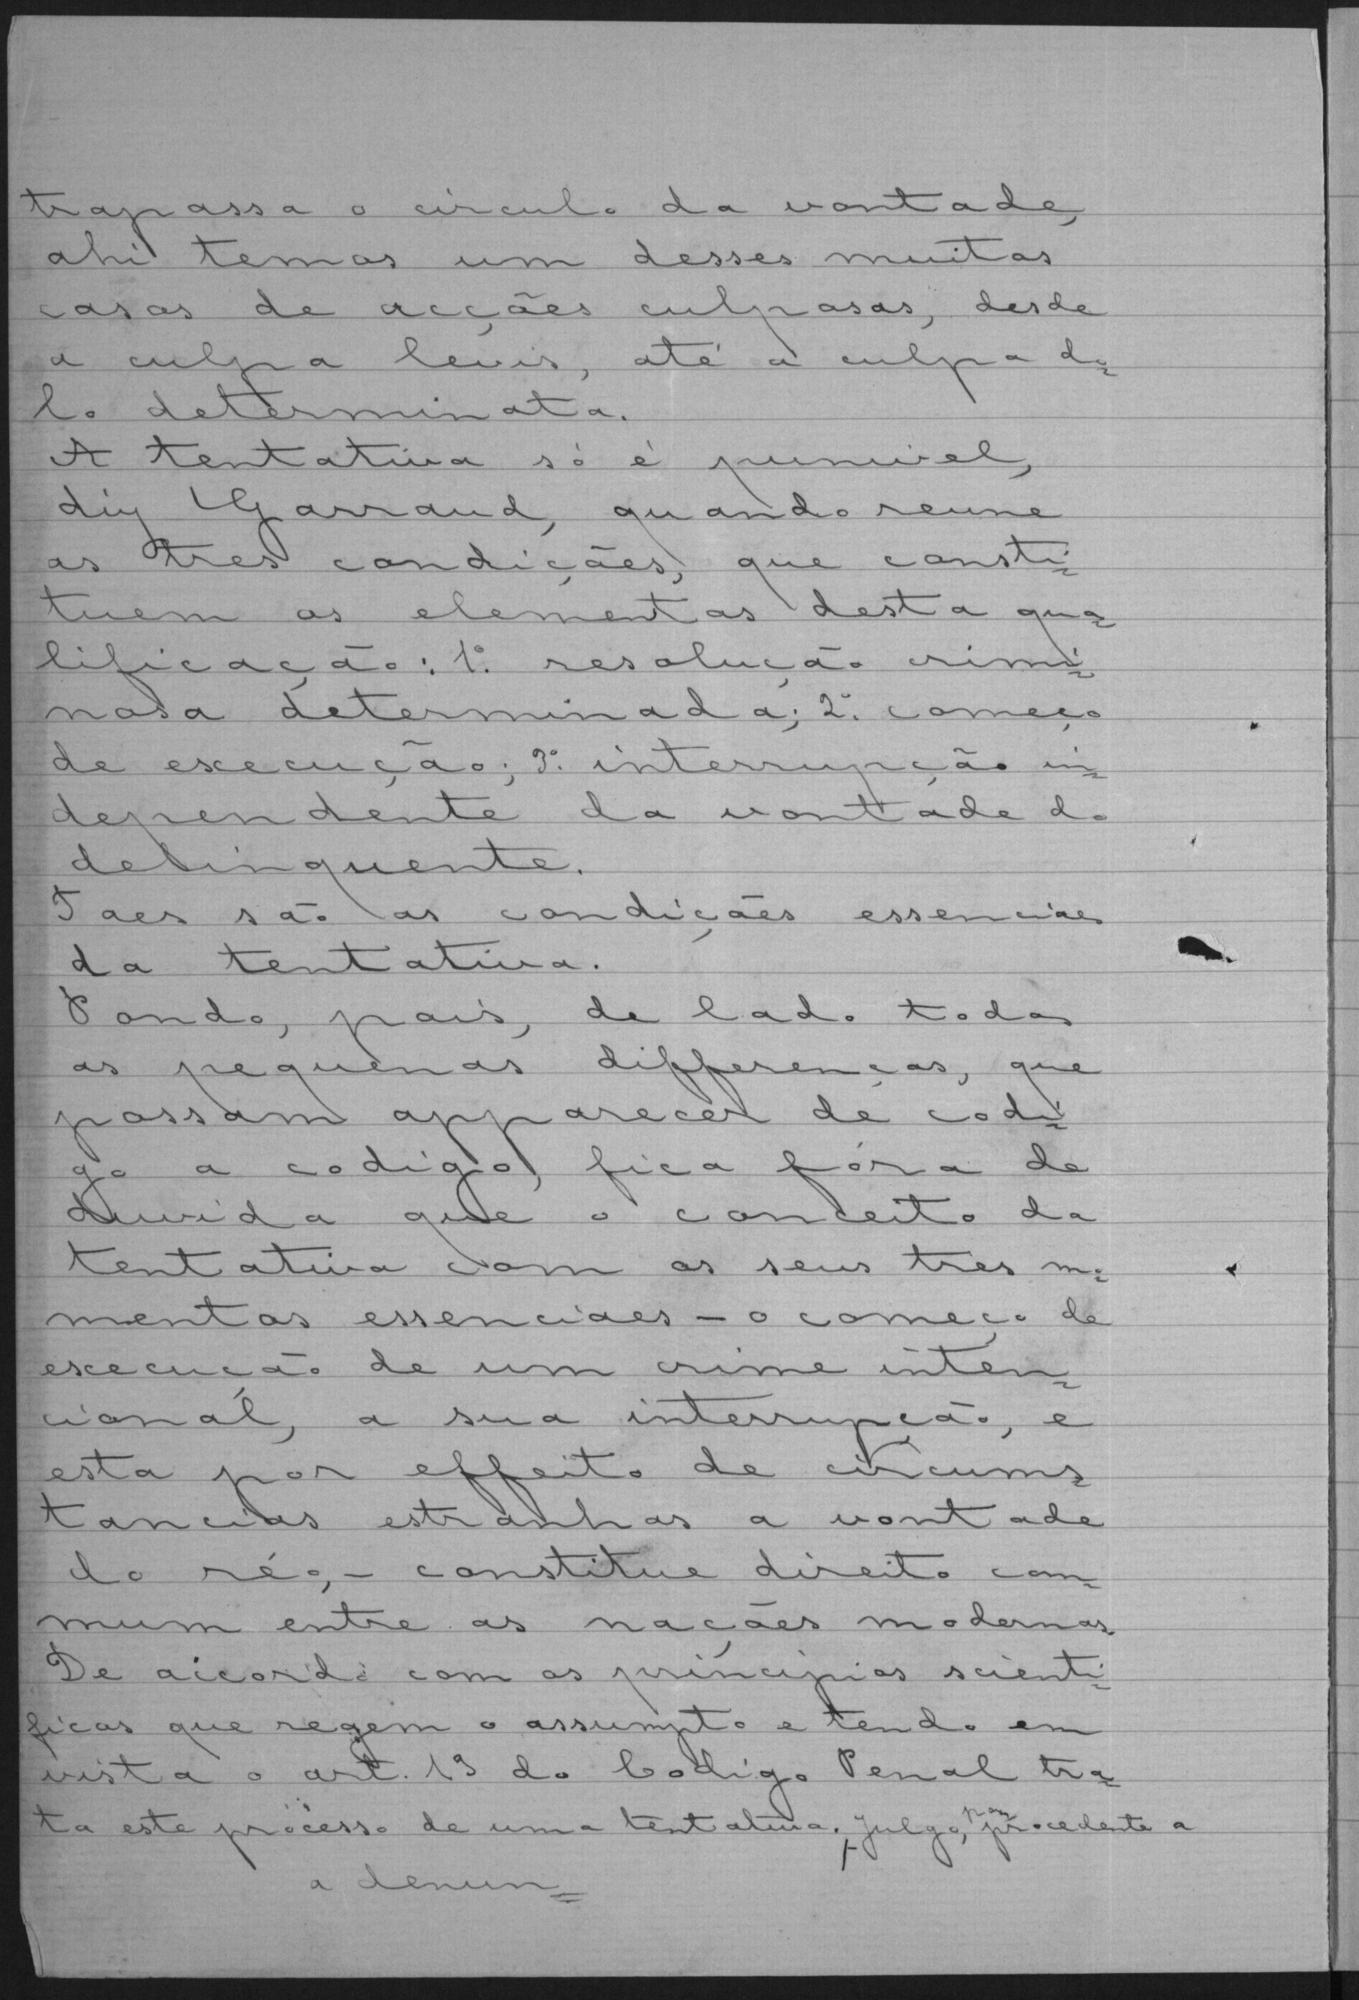 trapassa o circulo da vontade,
ahi temos um desses muitos
casos de acções culposas, desde
a culpa levis, até a culpa do=
lo determinata.
A tentativa só é punivel,
diz Garraud, quando reune
as tres condições, que consti=
tuem os elementos desta qua=
lificação: 1º. resolução crimi=
nosa determinada; 2º. começo
de execução; 3º. interrupção in=
dependente da vontade do
delinquente.
Taes são as condições essenciaes
da tentativa.
Pondo, pois, de lado todas
as pequenas differenças, que
possam apparecer de codi=
go a codigo, fica fóra de
duvida que o conceito da
tentativa com os seus tres mo=
mentos essenciaes – o começo de
execução de um crime inten=
cional, a sua interrupção, e
esta por effeito de circums=
tancias estranhas a vontade
do réo, – constitue direito com=
mum entre as nações modernas.
De accordo com os principios scienti=
ficos que regem o assumpto e tendo em
vista o art. 13 do Codigo Penal tra=
ta este processo de uma tentativa. Julgo, pois, procedente a
a denun=